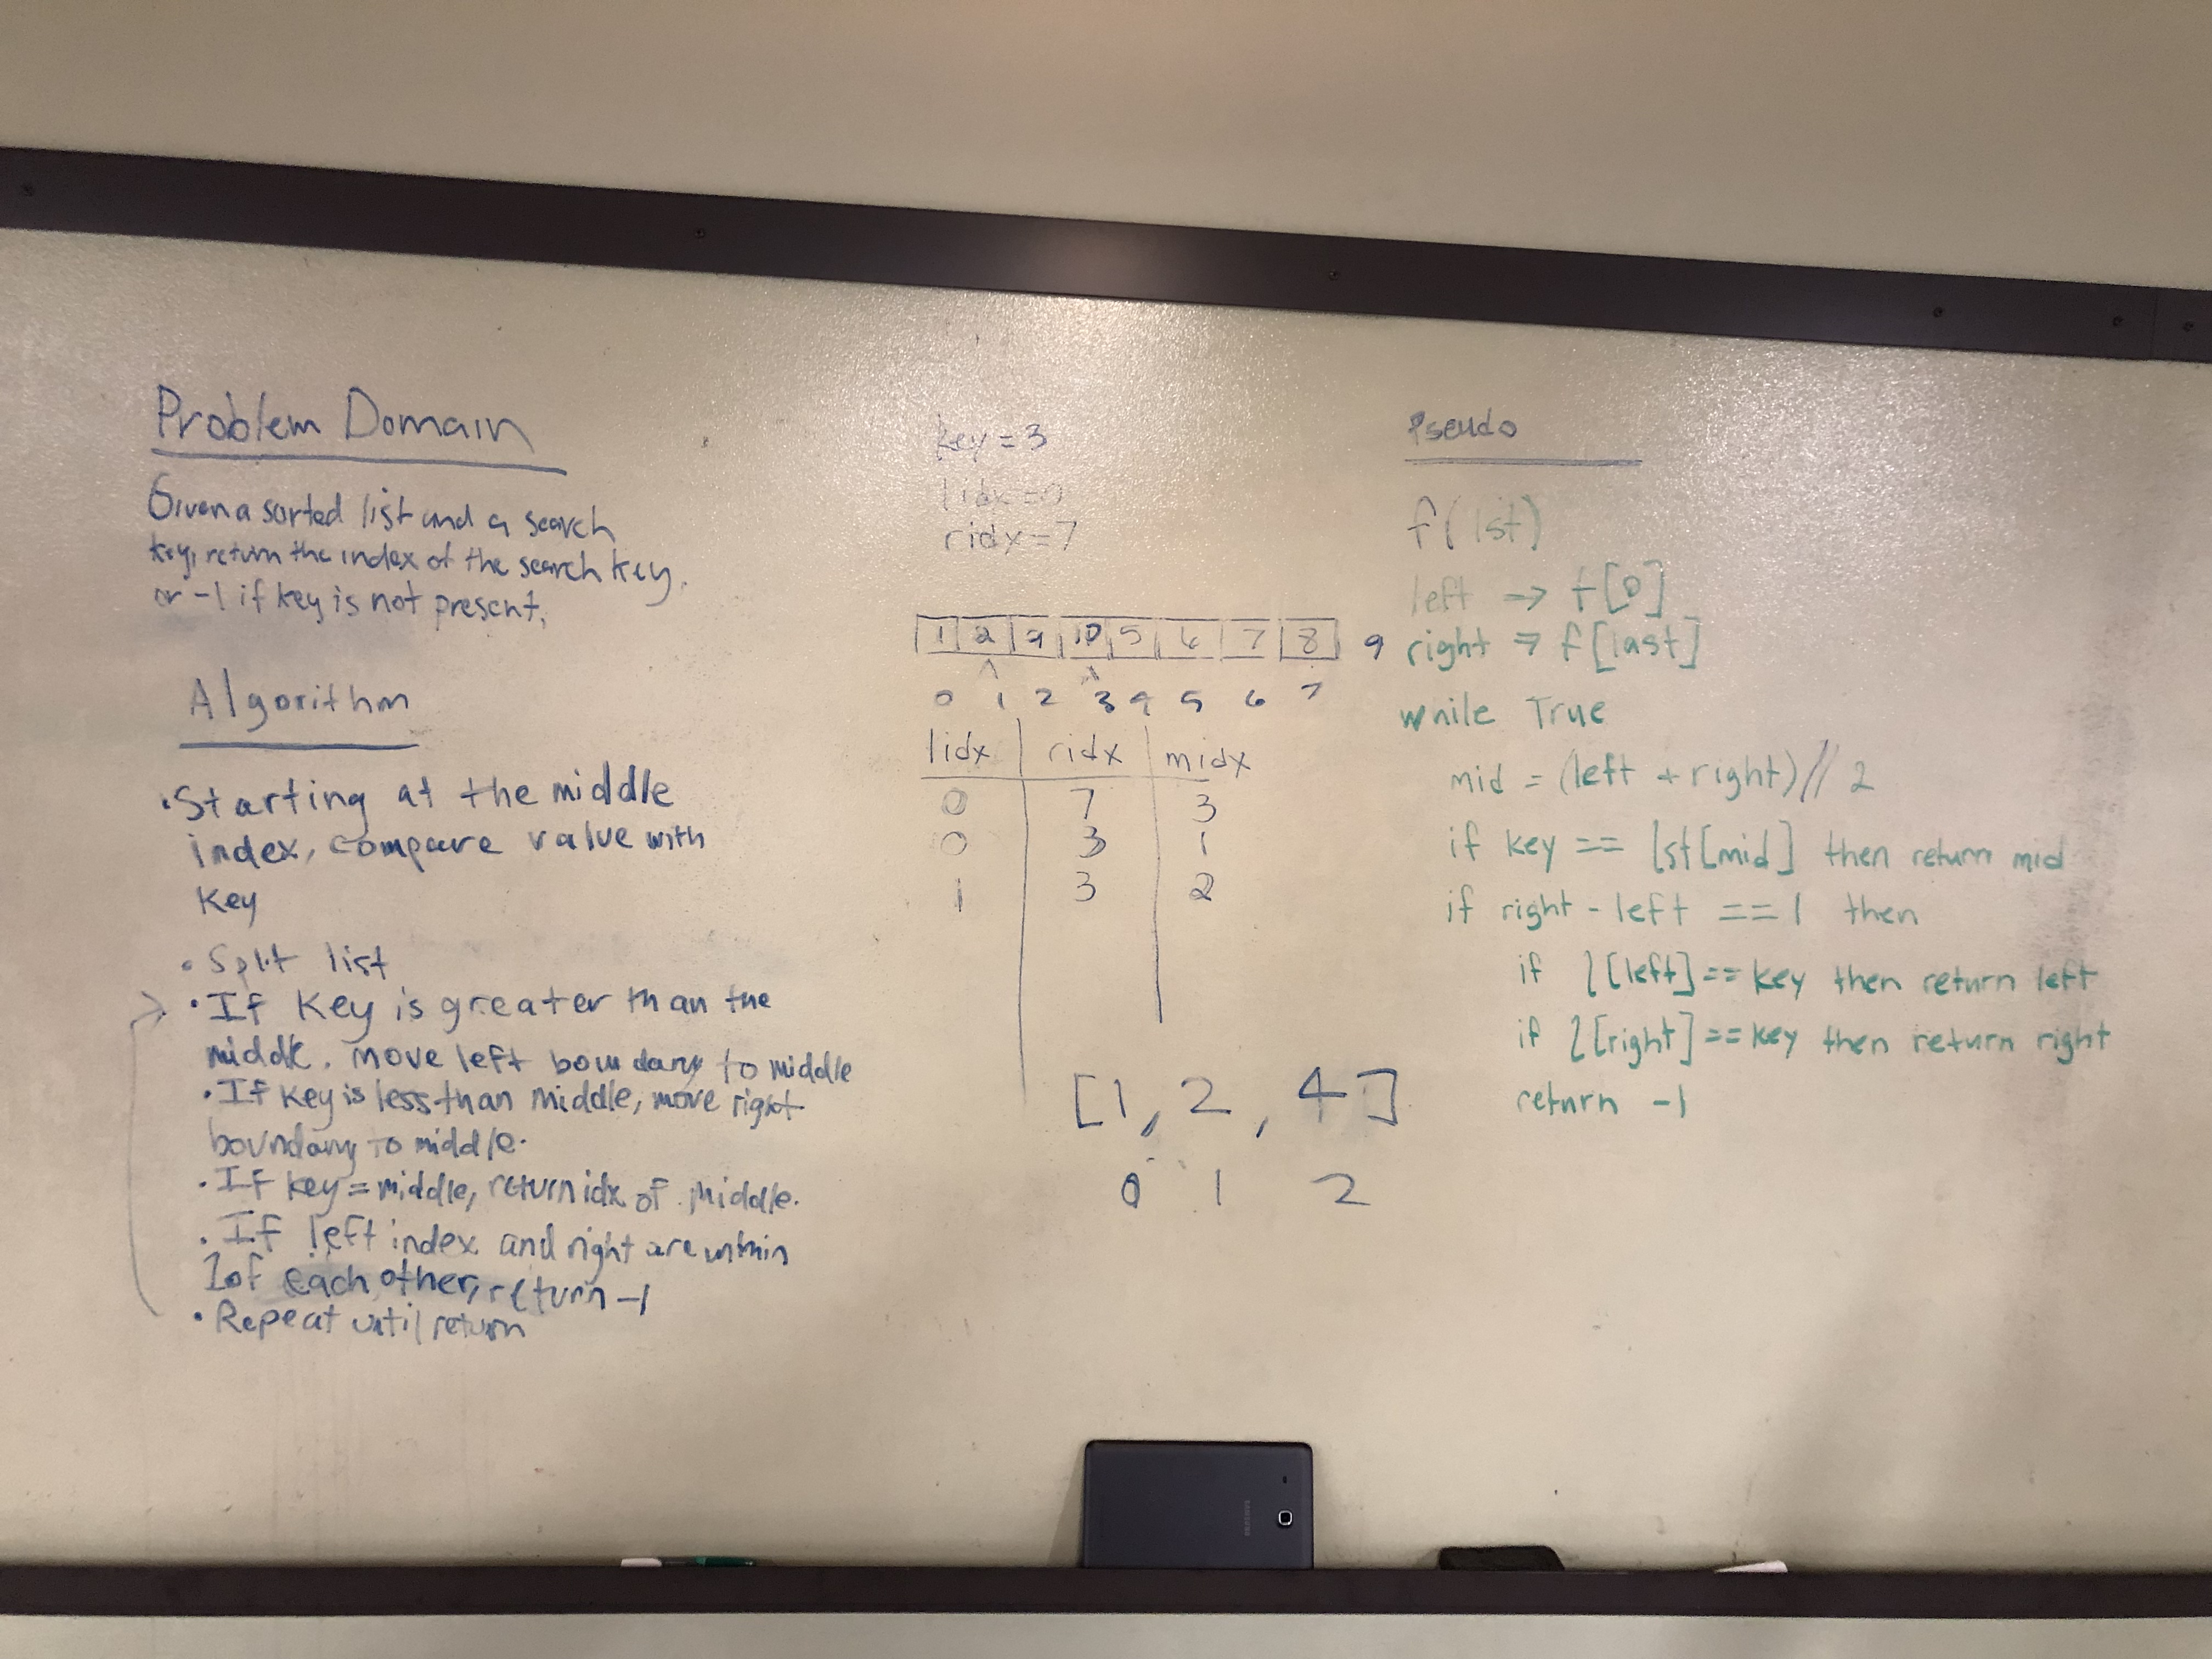 Problem Domain
Given a sorted list and a search
key, return the index of the search key.
or -1 if key is not present.
Algorithm
• Starting at the middle
index, compare value with
key
• Split list
• If key is greater than the
middle, move left boundary to middle
• If key is less than middle, move right
boundary to middle.
• If key = middle, return idx of middle.
• If left index and right are within
1 of each other, return -1
• Repeat until return
key = 3
lidx = 0
ridx = 7
1 2 9 10 5 6 7 8 9
0 1 2 3 4 5 6 7
lidx ridx midx
0 7 3
0 3 1
1 3 2
[1, 2, 4]
0 1 2
Pseudo
f(lst)
left → f[0]
right → f[last]
while True
mid = (left + right)//2
if key == lst[mid] then return mid
if right - left == 1 then
if l[left] == key then return left
if l[right] == key then return right
return -1
SAMSUNG